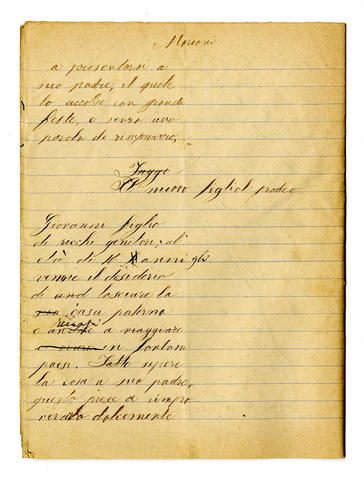 Marconi
a presentarsi a
suo padre, il quale
lo accolse con grande
feste, e senza una
parola di rimprovero,
Saggio
Il nuovo figliol prodeo
Giovanni figlio
di ricchi genitori, al
età di anni gli
venne il desiderio
di lasciare la
casa paterna
e a viaggiare
in lontani
paesi. Fatto sapere
la cosa a suo padre,
questo prese a rimpro
verarlo dolcemente